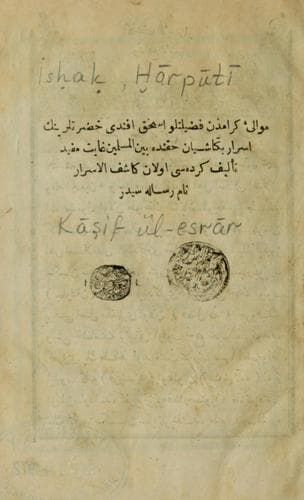 İsḥaḳ, Ḫārpūtī
موالئ كرامدن فضيلتلو اسحق افندى حضرتلرينك
اسرار بكتاشيان حقنده بين المسلمين غايت مفيد
تأليف كرده سى اولان كاشف الاسرار
نام رساله سيدر
Kāşif ül-esrār